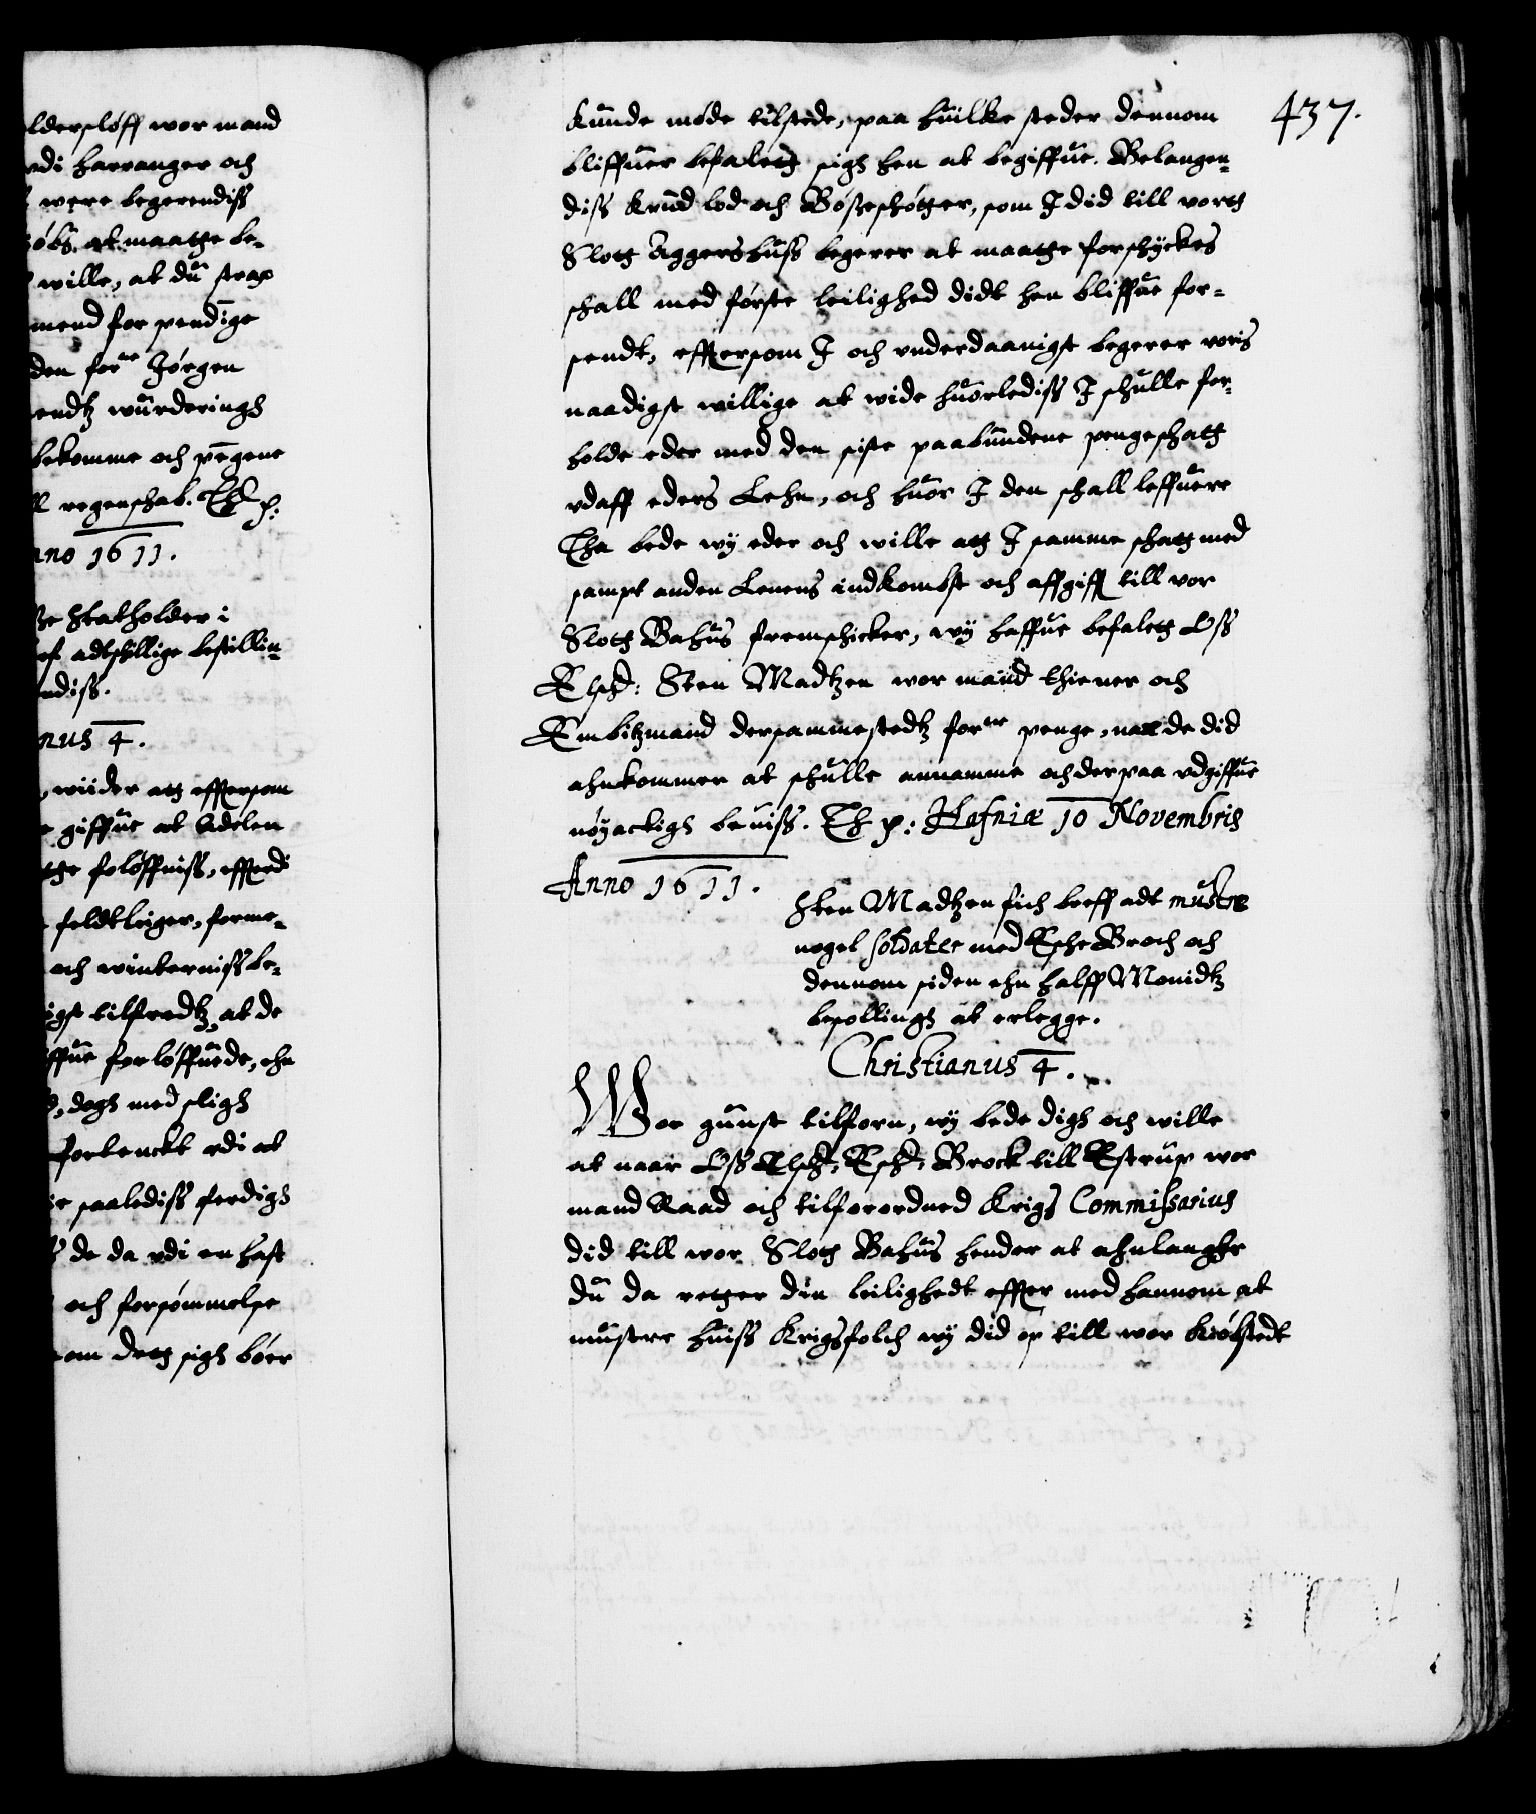 lderslöff wor mand
udi harranger och
were begerendiss
köbs, at maatge be-
wille, at du strax
mend for pendige
den forne Jörgen
endtz wurderings
bekomme och pegene
ll regenschab. Th p:
nno 1611.
Statholder i
adtskillige bestillin-
ndiss.
nus 4.
, wiider atg effttersom
giffue at Adelen
tge folöffniss, effterdi
feldtleiger, forme-
och winterniss be-
igst tilfredtz, at de
ffue forlöffuede, ehr
dogh med sligh
fortenckt udi at
saalediss ferdigh
de da udi en hast
och forsömmelse
om detg sigh böer
437.
kunde möde tilstede, paa huilke steder dennom
bliffuer befaletg sigh hen at begiffue. Belangen-
diss krud lod och Bösseskötger, som I did till vortg
Slotg Aggershuss begerer at maatge forskyckes
skall med förste leilighed didt hen bliffue for-
sendt, efftersom I och underdaanigst begerer voris
naadigst willige at wide huorlediss I skulle for-
holde eder med den siste paabundene pengeskatg
udaff eders Lehn, och huor I den skall leffuere
Tha bede wy eder och wille atg I samme skatg med
sampt anden Lenens indkombst och affgifft till vor
Slotg Bahus fremskicker, wy haffue befaletg Oss
Elsk: Sten Madtzen wor mand thiener och
Embitzmand dersammestedtz forne penge, naar de did
ahnkommer at skulle annamme och derpaa udgiffue
nöyactigh beuiss. Th p: Hafniæ 10 Novembris
Anno 1611.
Sten Madtzen fich breff adt mustre
nogel soldater med Eske Broch och
dennom siden ehn halff Monidtz
besolling at erlegge.
Christianus 4.
Wor gunst tilforn, wy bede digh och wille
at naar Oss Elsk: Esk: Brock till Estrup wor
mand Raad och tilforordned Krigs Commissarius
did till wor Slotg Bahus hender at ahnlanghe
du da retger din leilighedt effter med hannom at
mustre huiss Krigsfolch wy did op till wor kiöbstedt